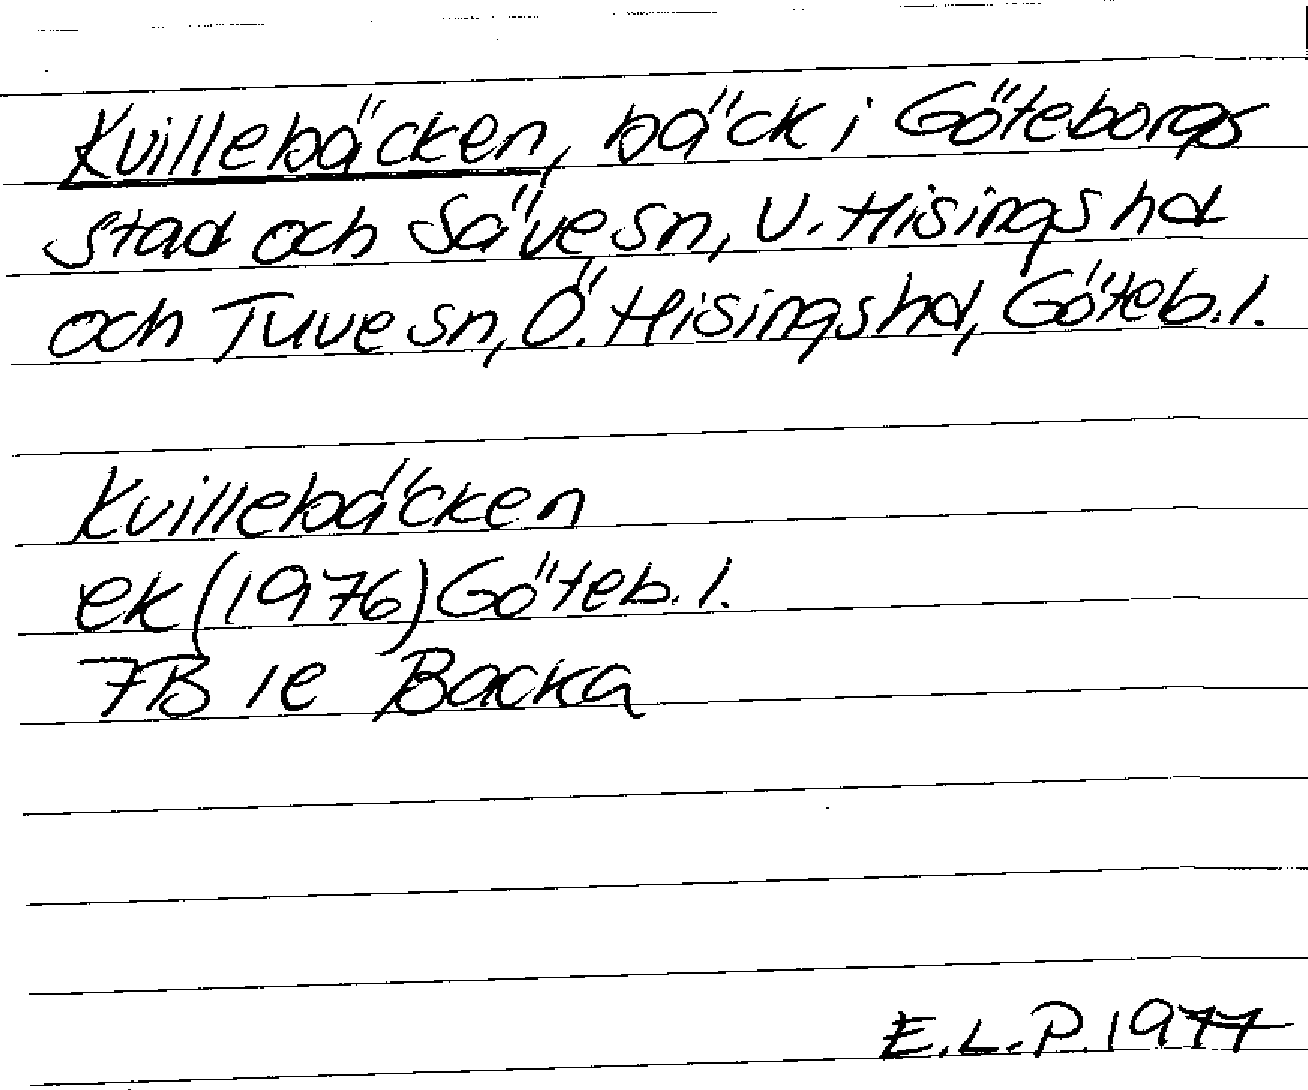 Kvillebäcken, bäck i Göteborgs
stad och Säve sn, V. Hisings hd
och Tuve sn, Ö. Hisings hd, Göteb. l.
Kvillebäcken
ek (1976) Göteb. l.
7B 1e Backa
E.L.P. 1977